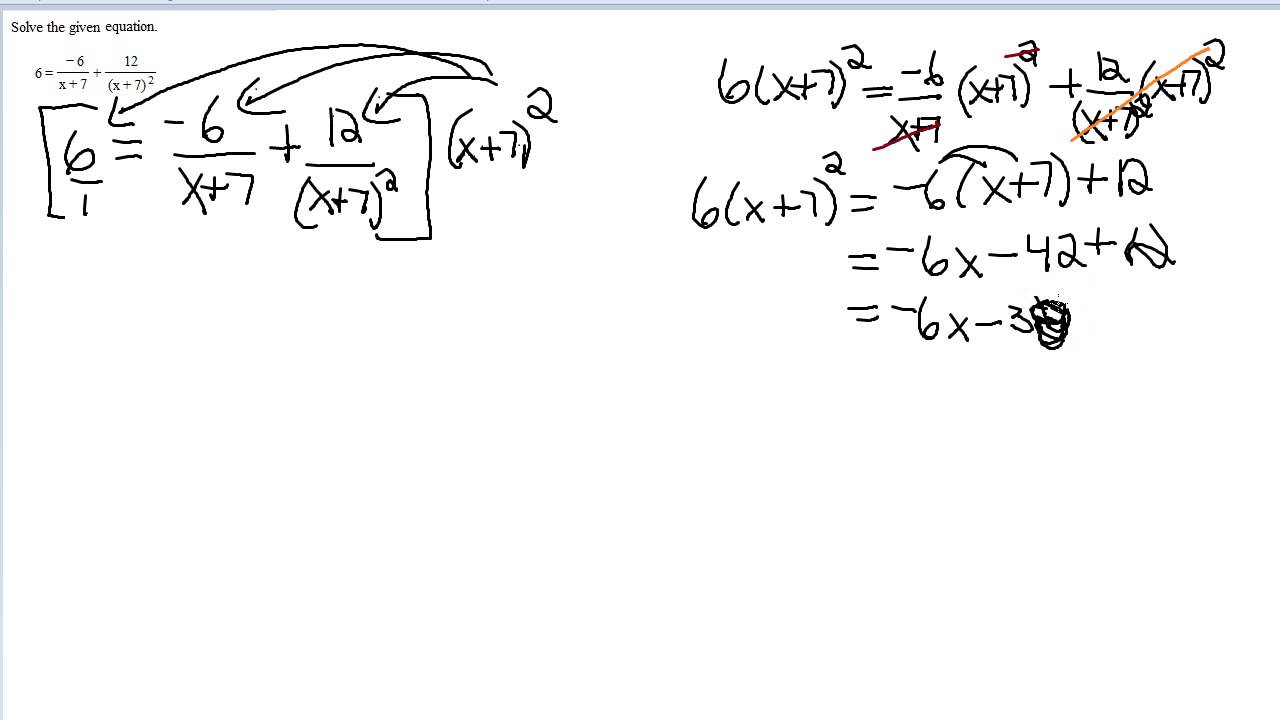 Solve the given equation.
6 = -6/(x+7) + 12/(x+7)²
[6/1 = -6/(x+7) + 12/(x+7)²] (x+7)²
6(x+7)² = -6/(x+7) (x+7)² + 12/(x+7)² (x+7)²
6(x+7)² = -6(x+7) + 12
= -6x - 42 + 12
= -6x - 3